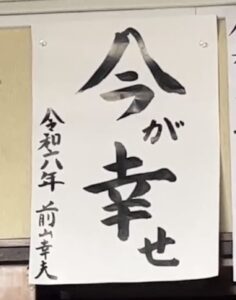 今が幸せ
令和六年 前山幸夫